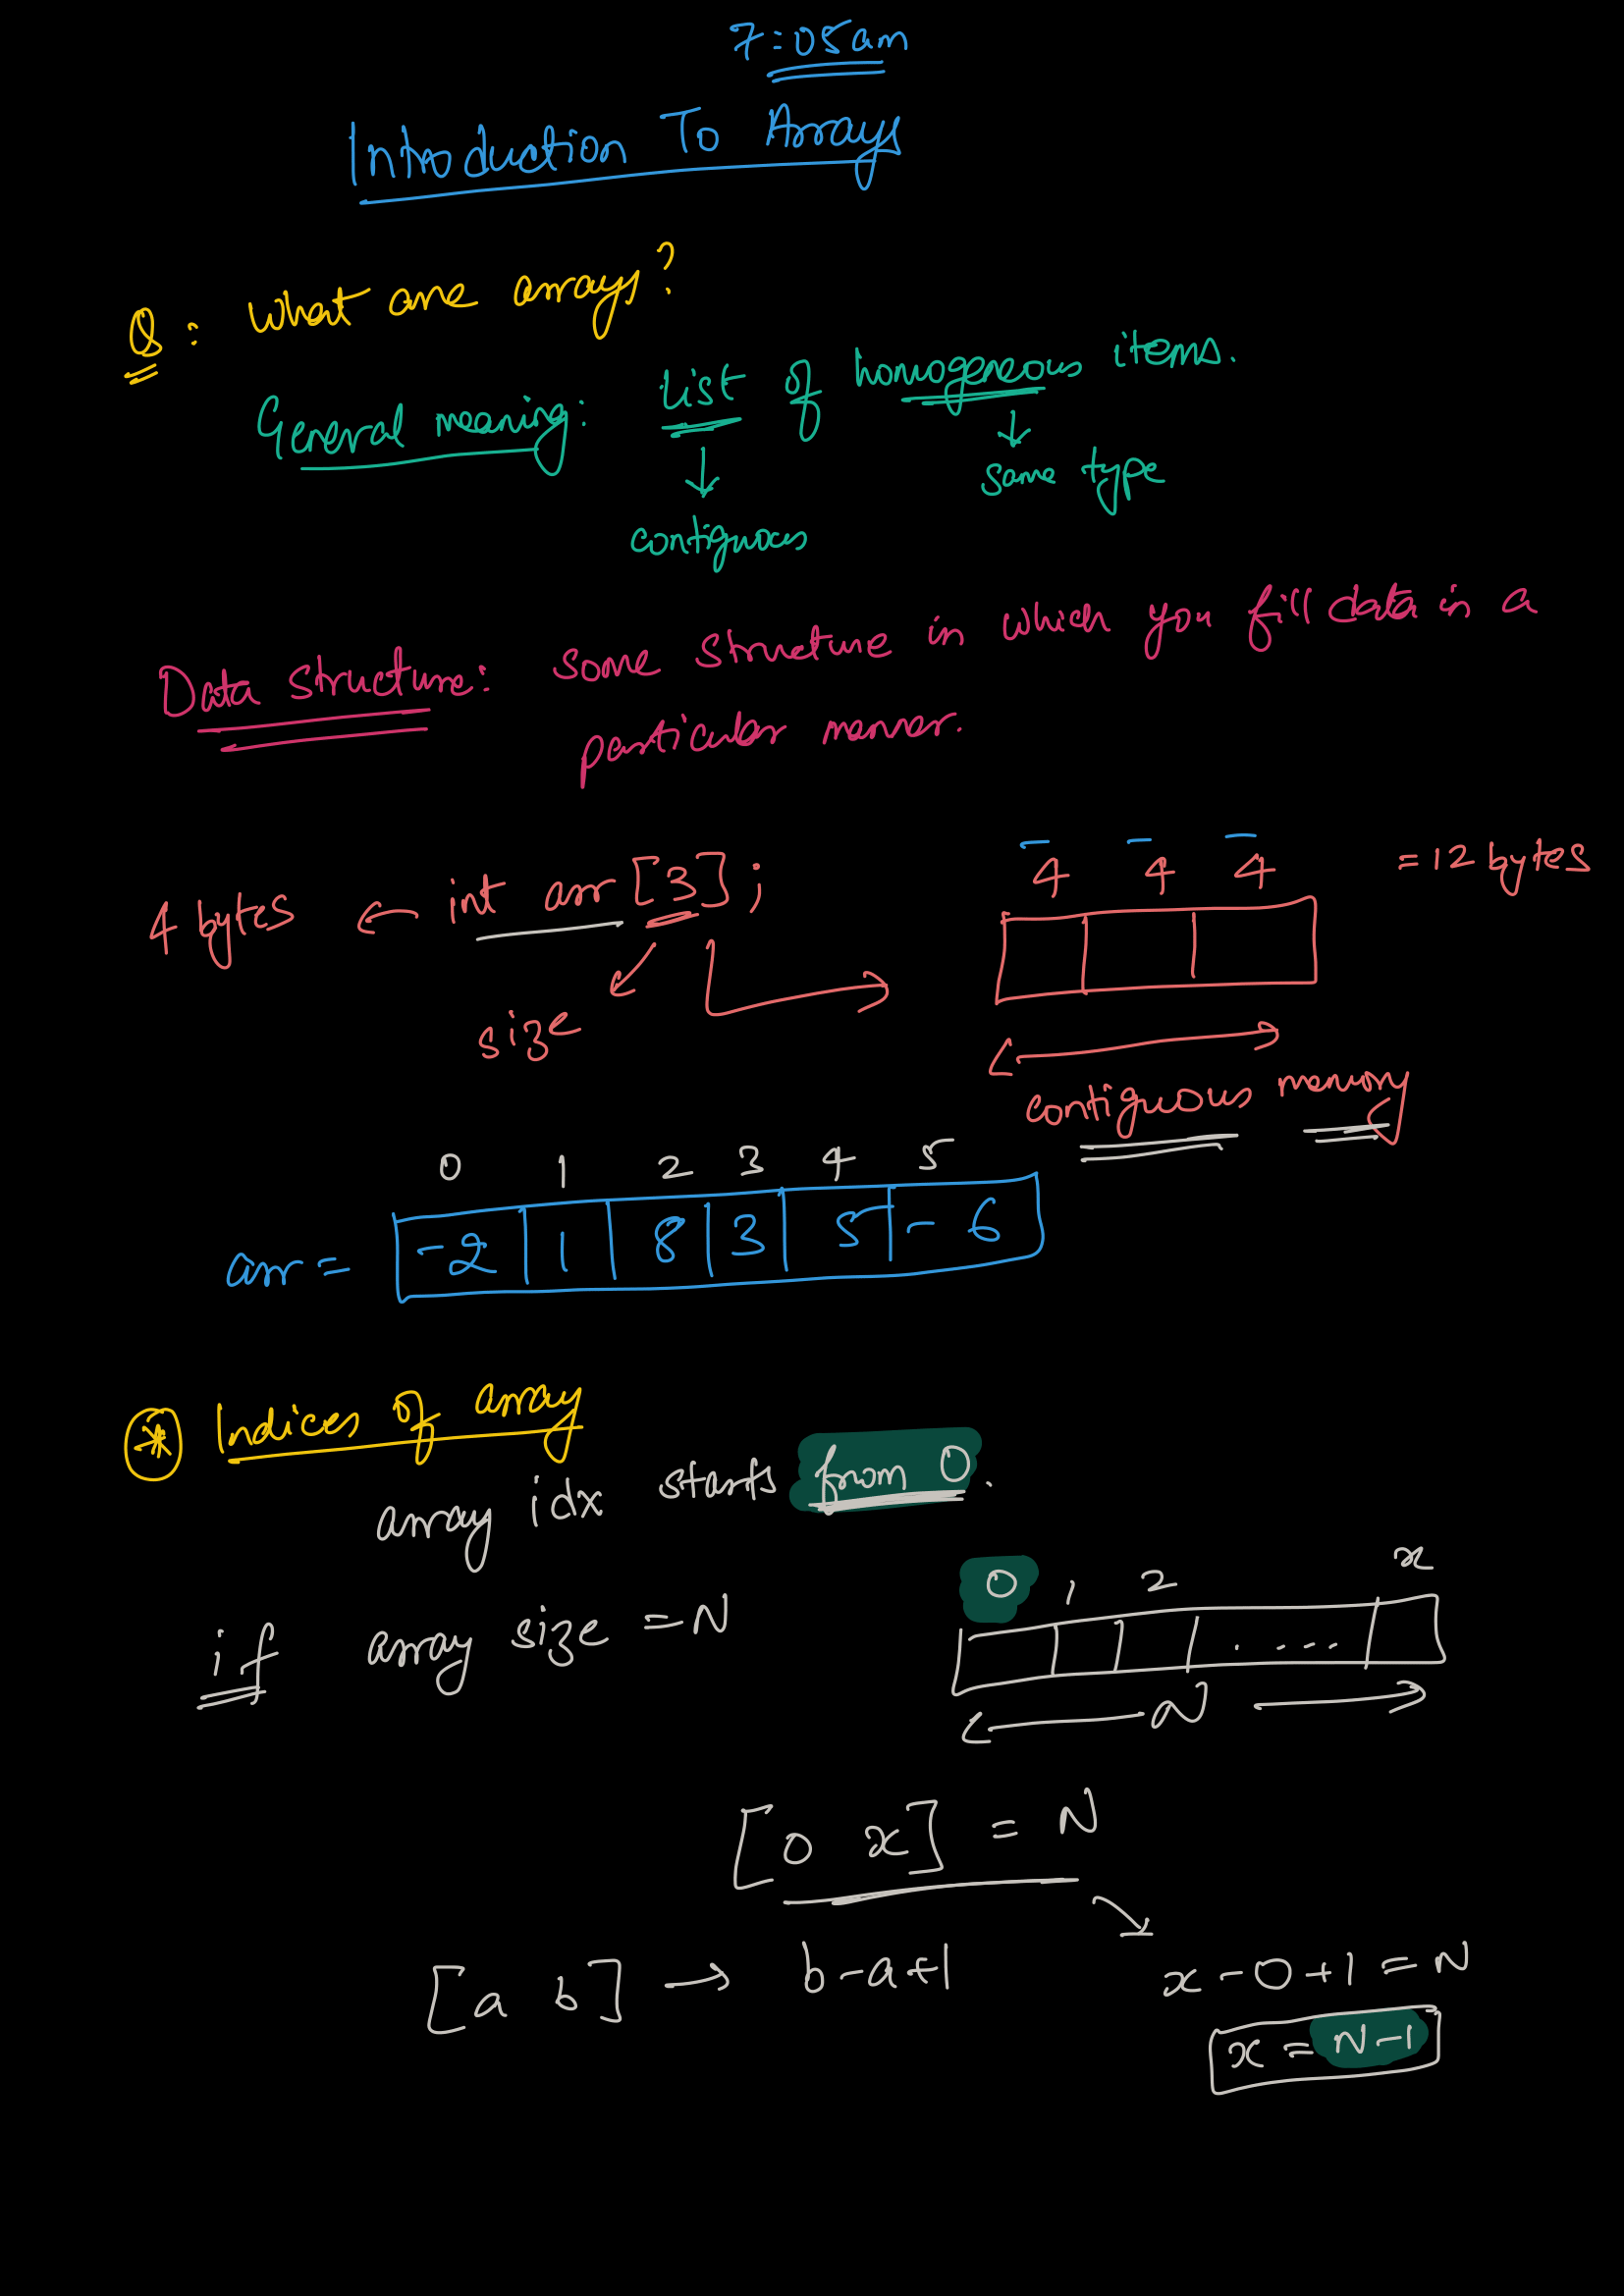 7:05am
Introduction To Arrays
Q: What are arrays?
General meaning: List of homogeneous items.
contiguous
same type
Data structure: some structure in which you fill data in a
particular manner.
4 bytes ← int arr [3];
4 4 4 = 12 bytes
size
contiguous memory
0 1 2 3 4 5
arr = -2 1 8 3 5 -6
* Indices of array
array idx starts from 0.
if array size = N
0 1 2 x
. . . . .
N
[0 x] = N
[a b] → b-a+1
x-0+1 = N
x = N-1